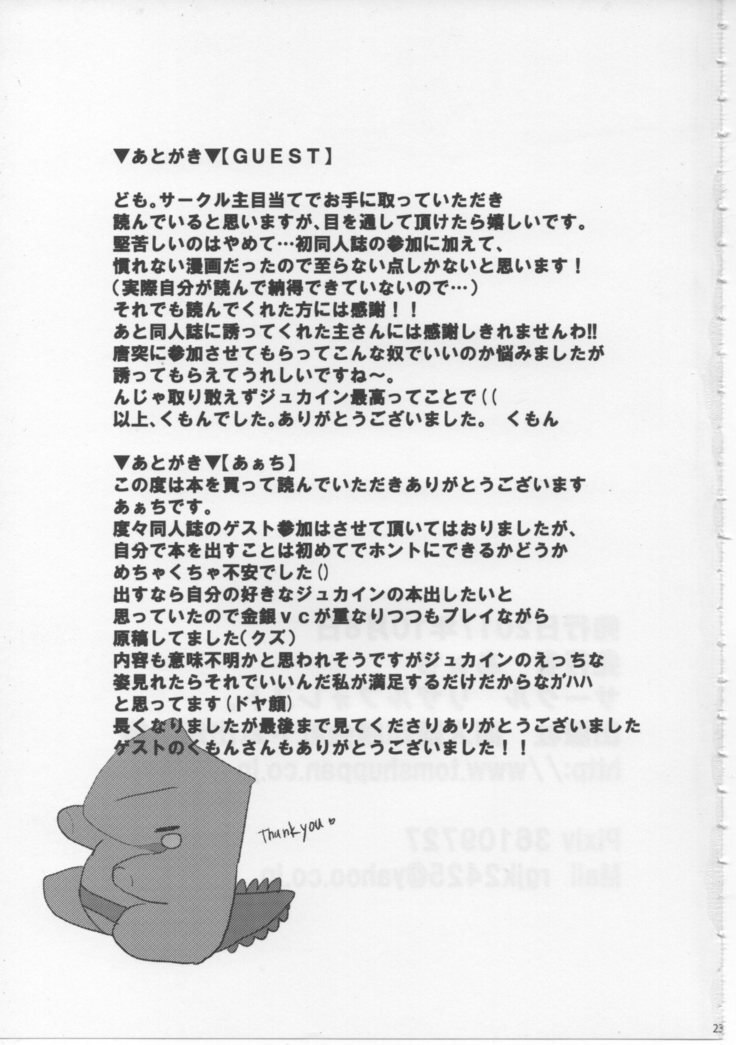 ▼あとがき▼【GUEST】
ども。サークル主目当てでお手に取っていただき
読んでいると思いますが、目を通して頂けたら嬉しいです。
堅苦しいのはやめて…初同人誌の参加に加えて、
慣れない漫画だったので至らない点しかないと思います！
（実際自分が読んで納得できていないので…）
それでも読んでくれた方には感謝！！
あと同人誌に誘ってくれた主さんには感謝しきれませんわ!!
唐突に参加させてもらってこんな奴でいいのか悩みましたが
誘ってもらえてうれしいですね～。
んじゃ取り敢えずジュカイン最高ってことで((
以上、くもんでした。ありがとうございました。　くもん
▼あとがき▼【あぁち】
この度は本を買って読んでいただきありがとうございます
あぁちです。
度々同人誌のゲスト参加はさせて頂いてはおりましたが、
自分で本を出すことは初めてでホントにできるかどうか
めちゃくちゃ不安でした()
出すなら自分の好きなジュカインの本出したいと
思っていたので金銀ｖｃが重なりつつもプレイながら
原稿してました（クズ）
内容も意味不明かと思われそうですがジュカインのえっちな
姿見れたらそれでいいんだ私が満足するだけだからなガハハ
と思ってます（ドヤ顔）
長くなりましたが最後まで見てくださりありがとうございました
ゲストのくもんさんもありがとうございました！！
Thank you♡
発行日2017年10月8日
http://www.tomshuppan.co.jp
Pixiv 36109727
Mail rgjk2425@yahoo.co.jp
23